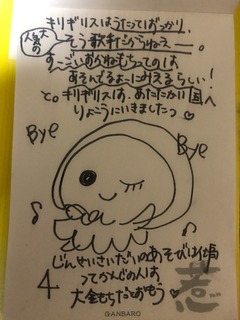 キリギリスはうたてばっかり、
大人気の
そう歌手だからねえー。
す〜ごいおかねもちってのは
あそんでるよーにみえるらしい!
と。キリギリスは、あたたかい国へ
りょこうにいきましたっ
Bye
Bye
じんせいさいだいのあそびは仕事
ってかんじの人は
大金もちだとおもう
4
惹
GANBARO